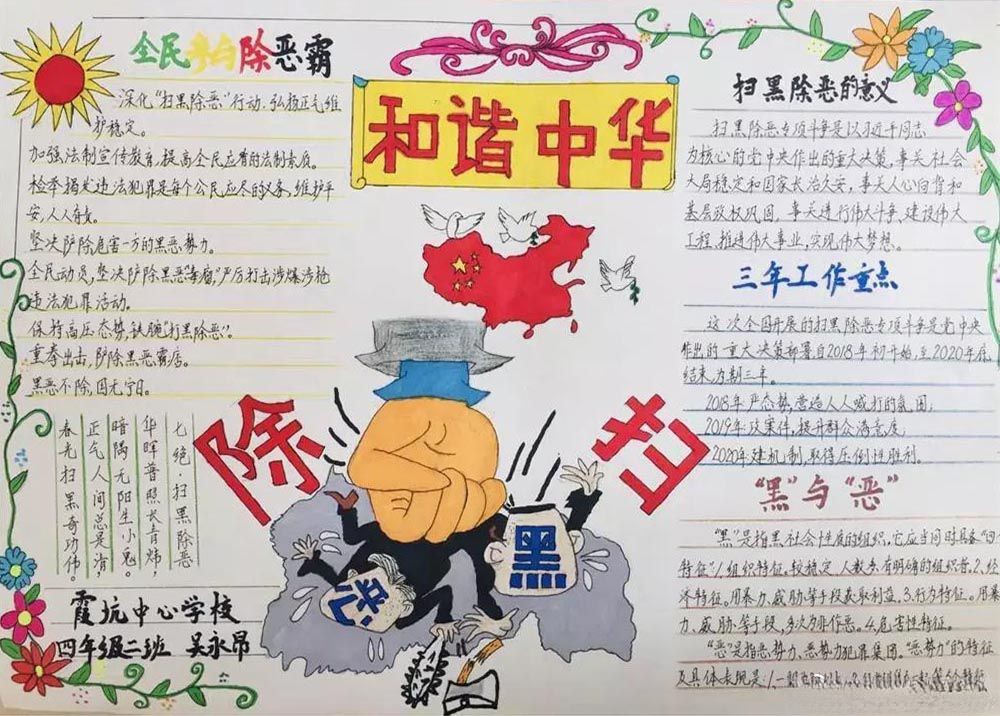 全民参与除恶霸
深化“扫黑除恶”行动、弘扬正气维
护稳定。
加强法制宣传教育，提高全民应有的法制素质。
检举揭发违法犯罪是每个公民应尽的义务，维护平
安，人人有责。
坚决铲除危害一方的黑恶势力。
全民动员，坚决铲除黑恶“毒瘤”严厉打击涉爆涉枪
违法犯罪活动。
保持高压态势，铁腕“打黑除恶”。
重拳出击，铲除黑恶霸痞。
黑恶不除，国无宁日。
七绝·扫黑除恶
华晖普照长青炜，
暗隅无阳生小鬼。
正气人间总是清，
春光扫黑奇功伟。
霞坑中心学校
四年级二班 吴永昂
和谐中华
除
扫
恶
黑
扫黑除恶的意义
扫黑除恶专项斗争是以习近平同志
为核心的党中央作出的重大决策，事关社会
大局稳定和国家长治久安，事关人心向背和
基层政权巩固，事关进行伟大斗争，建设伟大
工程，推进伟大事业，实现伟大梦想。
三年工作重点
这次全国开展的扫黑除恶专项斗争是党中央
作出的重大决策部署自2018年初开始，至2020年底
结束，为期三年。
2018年严态势，营造人人喊打的氛围；
2019年攻案件，提升群众满意度
2020年建机制，取得压倒性胜利。
“黑”与“恶”
“黑”是指黑社会性质的组织，它应当同时具备“四个
特征”1.组织特征。较稳定，人数多，有明确的组织者、2、经
济特征。用暴力、威胁等手段获取利益，3.行为特征。用暴
力、威胁等手段，多次为非作恶。4.危害性特征。
“恶”是指恶势力、恶势力犯罪集团，“恶势力”的特征
及具体表现是：1.一般